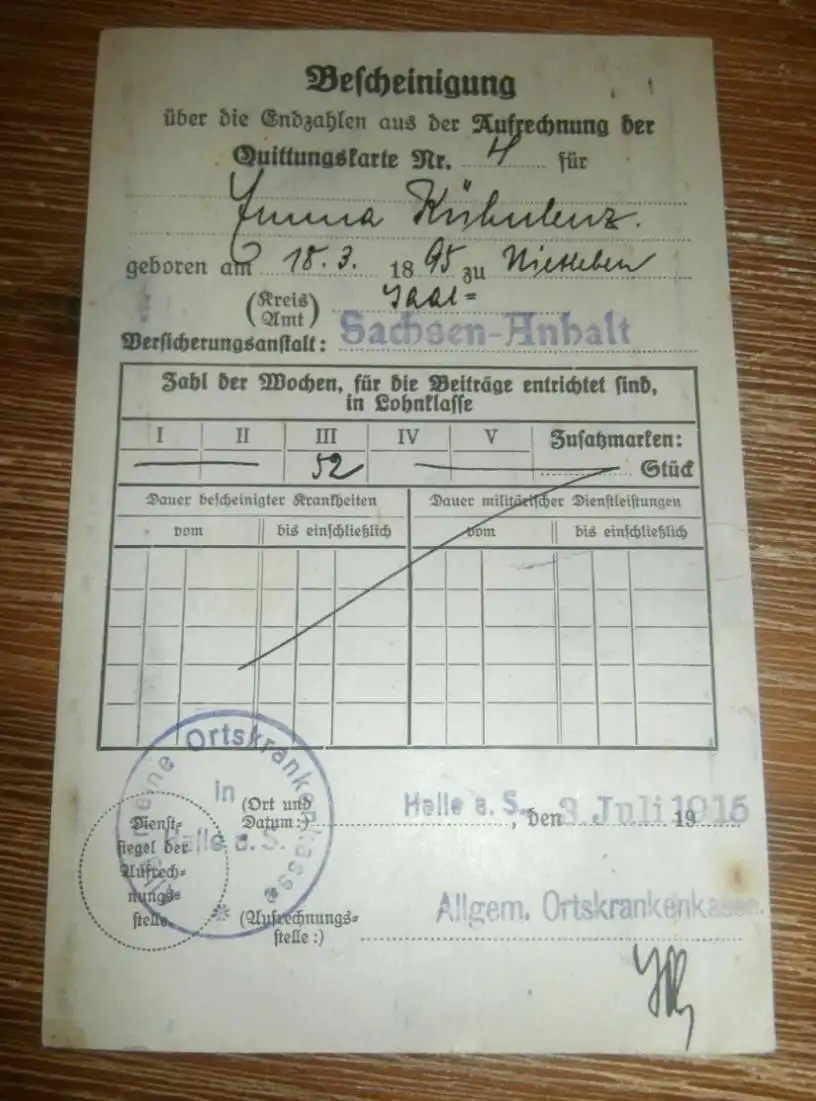 Bescheinigung
über die Endzahlen aus der Aufrechnung der
Quittungskarte Nr. 4 für
Emma Kühnlenz.
geboren am 18. 3. 1895 zu Nietleben
(Kreis Amt) Saal=
Versicherungsanstalt: Sachsen-Anhalt
Zahl der Wochen, für die Beiträge entrichtet sind,
in Lohnklasse
I II III IV V Zusatzmarken:
52 Stück
Dauer bescheinigter Krankheiten Dauer militärischer Dienstleistungen
vom bis einschließlich vom bis einschließlich
Allgemeine Ortskrankenkasse
in
Halle a. S.
(Ort und
Datum:) Halle a. S., den 3. Juli 1915
Dienst-
siegel der
Aufrech-
nungs-
stelle.
(Aufrechnungs-
stelle:) Allgem. Ortskrankenkasse.